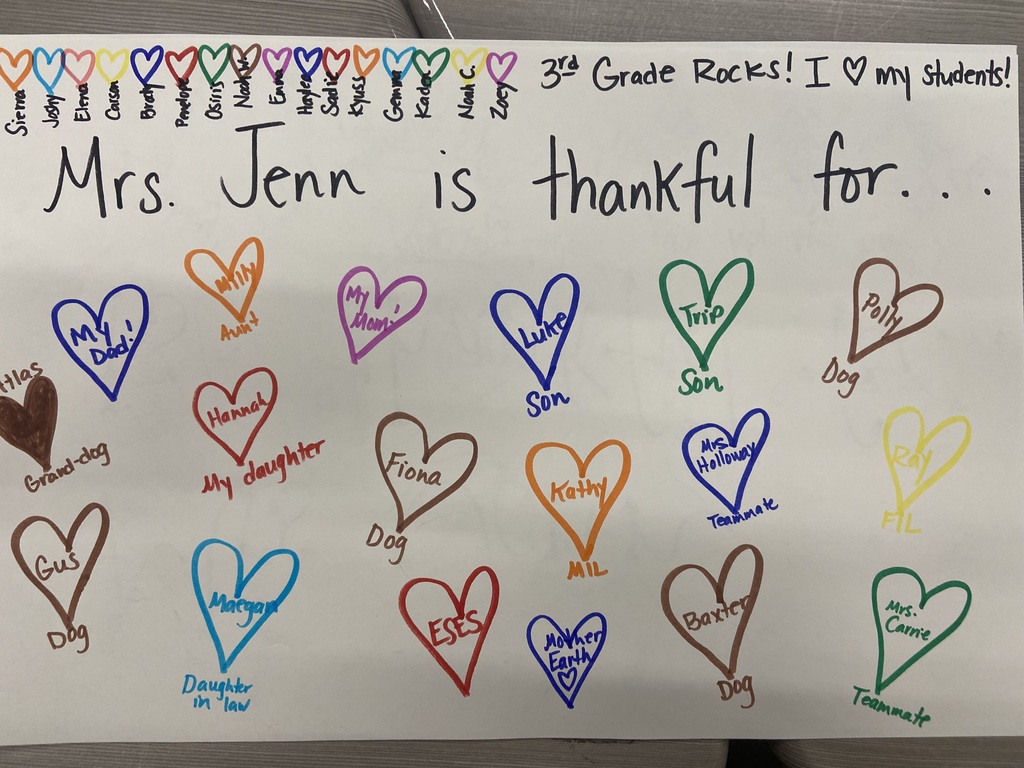 Sierra Joshy Elena Carson Brody Penelope Osiris Noah H. Emma Haylee Sadie Kyuss Gemma Kaden Noah C. Zoey
3rd Grade Rocks! I ♡ my students!
Mrs. Jenn is thankful for...
My
Dad!
Milly
Aunt
My
Mom!
Luke
Son
Trip
Son
Polly
Dog
Grand-dog
Hannah
My daughter
Fiona
Dog
Kathy
MIL
Mrs.
Holloway
Teammate
Ray
FIL
Gus
Dog
Maegan
Daughter
in law
ESES
Mother
Earth
♡
Baxter
Dog
Mrs.
Carrie
Teammate